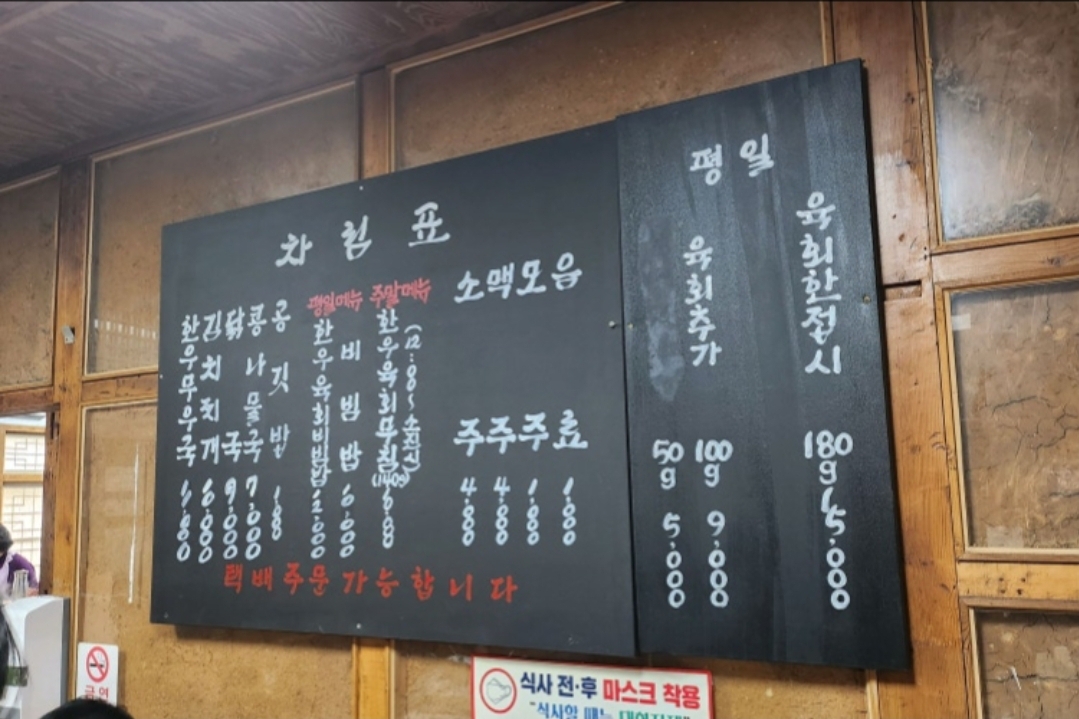 차림표
한우무우국
김치찌개 6.000
닭국 9.000
콩나물국 7.000
공깃밥 1.000
평일메뉴
한우육회비빔밥 12.000
비빔밥 6.000
주말메뉴
한우육회무침(140g)
(12:00~소진시)
소주 4.000
맥주 4.000
모주 1.000
음료 1.000
택배주문가능합니다
평일
육회추가
50g 5.000
100g 9.000
육회한접시
180g 15.000
금연
식사 전·후 마스크 착용